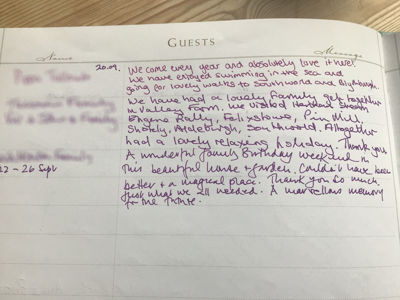 GUESTS
Name
Message
20.09. We come every year and absolutely love it here!
We have enjoyed swimming in the sea and
going for lovely walks to Southwold and Blythburgh.
We have had a lovely family get together
in Valley Farm. We visited Steam
Engine Rally, Felixstowe, Pin Mill,
Shotely, Aldeburgh, Southwold. Altogether
had a lovely relaxing holiday. Thank you
A wonderful family Birthday weekend in
22 – 26 Sept
this beautiful house & garden. Couldn't have been
better & a magical place. Thank you so much.
Just what we all needed. A marvellous memory
for the future.